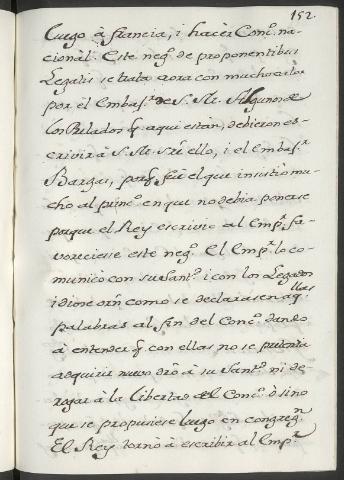 152.
luego à francia, i hacer Conc.º na-
cionàl. Este neg.º de proponentibus
Legatis se trata aora con mucho calor
por el Embax.ʳ de S. M. Algunos de
los Prelados q̃ aqui estàn, debieron es-
crivir à S. M. sr̃e ello, i el Embax.ʳ
Bargas, porq̃ fuè el que insistiò mu-
cho al princ.º en que no debia ponerse
porque el Rey escrivio al Emp.ʳ fa-
voreciesse este neg.º El Emp.ʳ lo co-
municò con su Sant.ᵈ i con los Legados
i diose orñ como se declarassen aq.
llas
palabras al fin del Conc.º dando
à entender q̃ con ellas no se pretendia
adquirir nuevo dr̃o à su Sant.ᵈ ni de-
rogar à la libertad del Conc.º ò sino
que se propusiese luego en congreg.ⁿ
El Rey tornò à escribir al Emp.ʳ